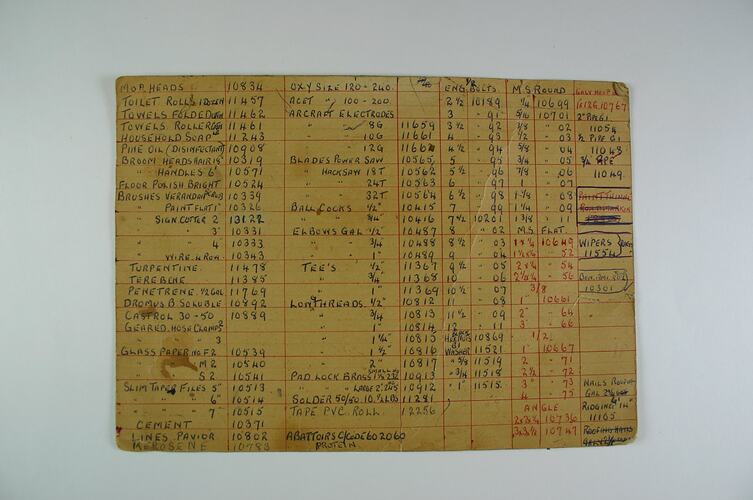 MOP. HEADS 10834 OXY SIZE 120-240. ENG. BOLTS M.S. ROUND
TOILET ROLLS 1 DOZEN 11457 ACET " 100-200. 2 1/2 10189 1/4 10699 10767
TOWELS FOLDED 11462 ARCRAFT ELECTRODES 3 " 91 5/16 10701 2" PIPE G.I.
TOWELS ROLLER 11461 " 8G 11659 3 1/2 " 92 3/8 " 02 11054
HOUSEHOLD SOAP 11243 " 10G 11661 4 " 93 1/2 " 03 1/2 PIPE G.I
PINE OIL (DISINFECTANT) 10908 " 12G 4 1/2 " 94 5/8 " 04 11043
BROOM HEADS HAIR 18" 10319 BLADES POWER SAW 10565 5 " 95 3/4 " 05 3/4 PIPE
" HANDLES 6' 10571 " HACKSAW 18T 10562 5 1/2 " 96 7/8 " 06 11049
FLOOR POLISH BRIGHT 10524 " 24T 10563 6 " 97 1 " 07
BRUSHES VERANDAH 10339 " 32T 10564 6 1/2 " 98 1 1/4 " 08
" PAINT FLAT 1" 10326 BALL COCKS 1/2" 10415 7 " 99 1 1/4 " 09
" SIGN. COTTER 2 13122 " 3/4" 10416 7 1/2 10201 1 3/8 " 11
" " 3 10331 ELBOWS GAL 1/2" 10487 8 " 02 M.S. FLAT.
" " 4 10333 " 3/4 10488 8 1/2 " 03 10649 WIPERS
" WIRE 4 ROW 10343 " 1" 10489 9 " 04 " 52 11554
TURPENTINE. 11478 TEE'S 1/2" 11367 9 1/2 " 05 " 54
TEREBINE 11385 " 3/4 11368 10 " 06 " 56
PENETRENE. 1/2 GAL 11769 " 1" 11369 10 1/2 " 07 3/8 10301
DROMUS B SOLUBLE 10892 LONGTHREADS. 1/2" 10812 11 " 08 1" 10661
CASTROL 30-50 10889 " 3/4 10813 11 1/2 " 09 2" " 64
GEARED. HOSE CLAMPS 2 " 1" 10814 12 " 11 3" " 66
" " 3 " 1 1/4" 10815 10869 1/2.
GLASS PAPER. NO F2 10539 " 1 1/2 10816 WASHER 11521 1" 10667
" M2 10540 " 2" 10817 " 3/8 11519 2 " 71
" S2 10541 PAD LOCK BRASS 10913 " 3/4 11518 2 1/2 " 72
SLIM TAPER FILES 5" 10513 " " LARGE 10912 " 1" 11515. 3" " 73
" " " 6" 10514 SOLDER 50/50. 11281 4 " 75 GAL
" " " 7" 10515 TAPE P.V.C. ROLL. 12256 ANGLE RIDGING
CEMENT 10371 10736 11105
LINES. PAVIOR 10802 ABATTOIRS C/CODE 602060 10747
KEROSENE 10783 PROTEIN.